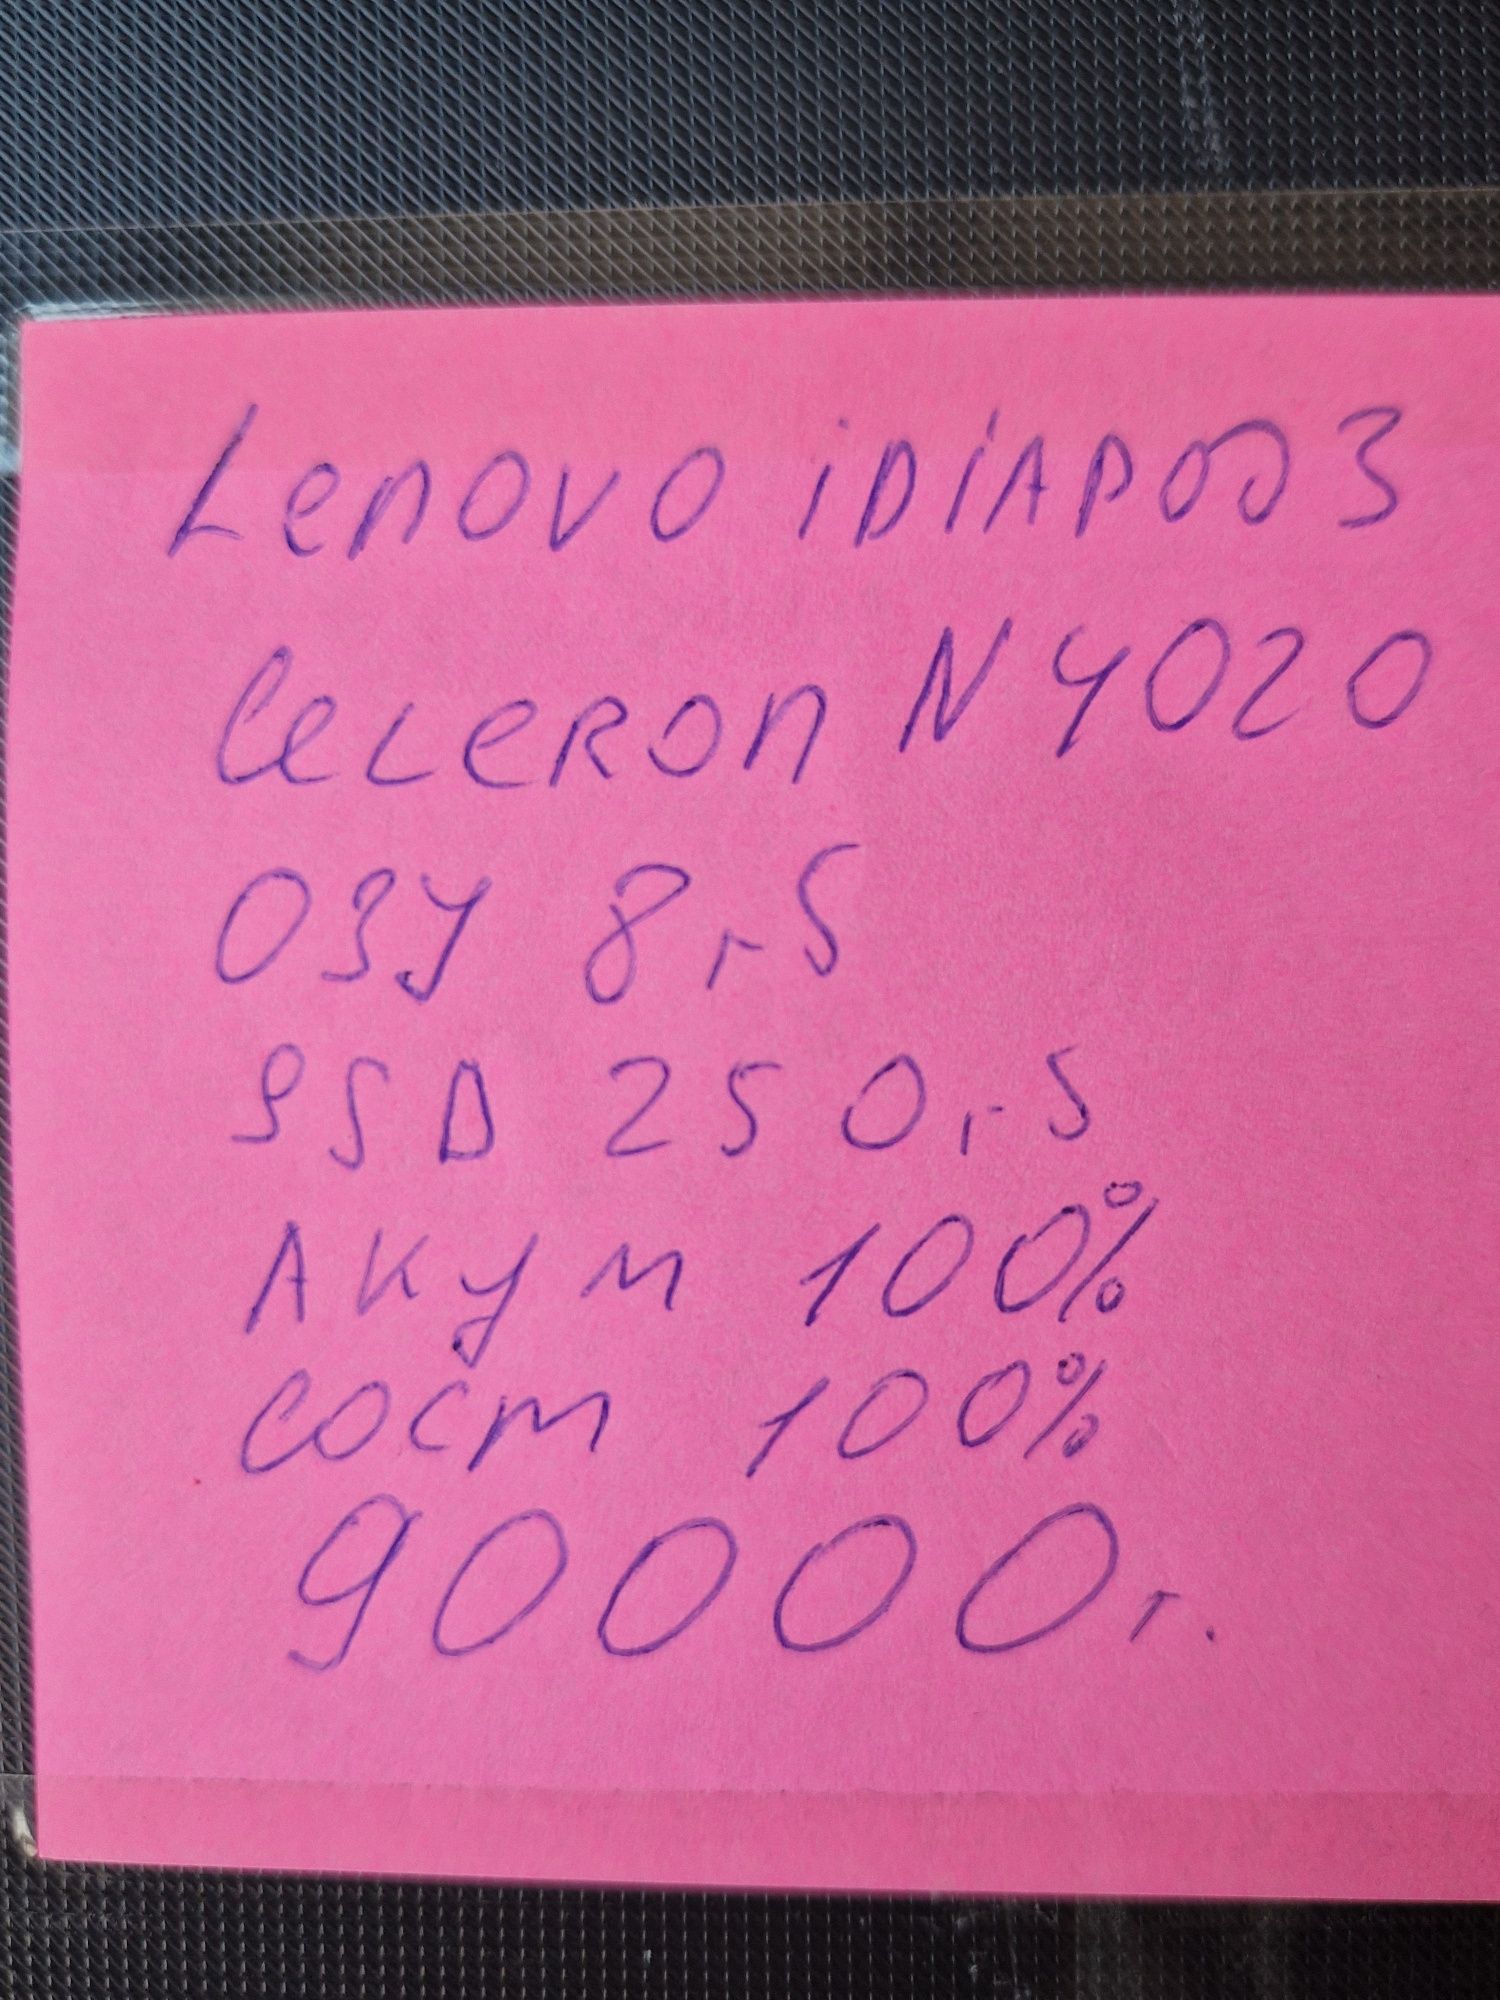 Lenovo iDiAPOD 3
Celeron N4020
ОЗУ 8 гб
SSD 250 гб
Акум 100%
сост 100%
90000 т.